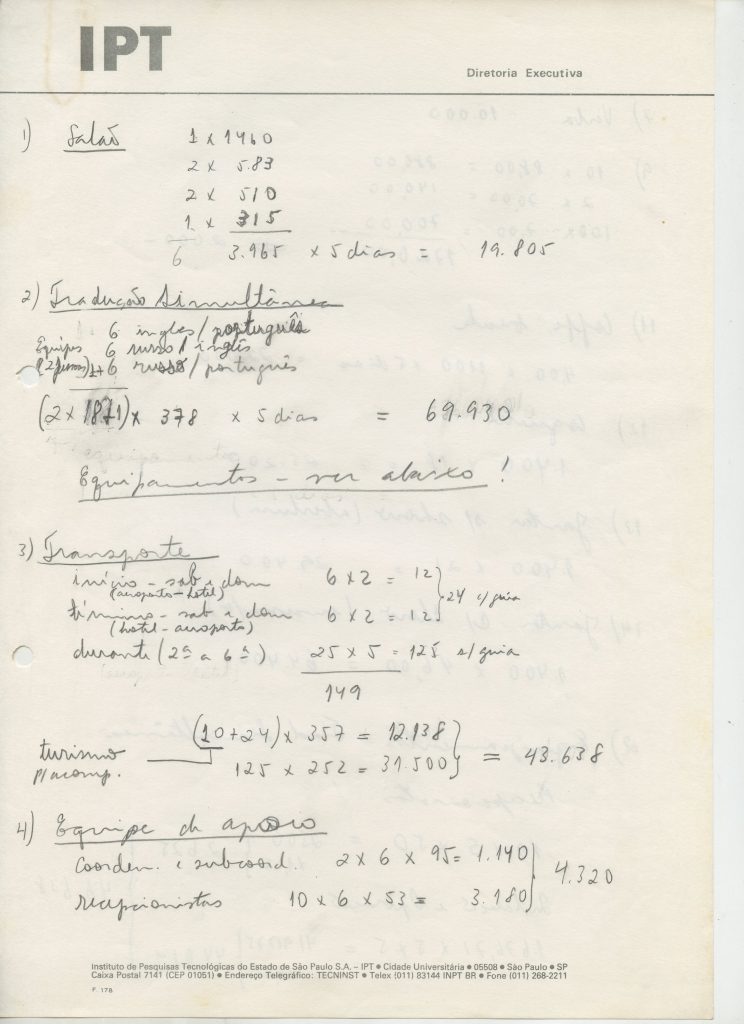 IPT
Diretoria Executiva
1) Salão 1 x 1460
2 x 583
2 x 510
1 x 315
6 3.965 x 5 dias = 19.805
2) Tradução Simultânea
6 inglês / português
Equipes 6 russo / inglês
6 russo / português
(2 x ) x 378 x 5 dias = 69.930
Equipamentos - ver abaixo!
3) Transporte
início - sab e dom 6 x 2 = 12
(aeroporto - hotel) 24 c/ guia
término - sab e dom 6 x 2 = 12
(hotel - aeroporto)
durante (2ª a 6ª) 25 x 5 = 125 s/ guia
149
(10 + 24) x 357 = 12.138
turismo = 43.638
p/ acomp. 125 x 252 = 31.500
4) Equipe de apoio
Coorden. e subcoord. 2 x 6 x 95 = 1.140
4.320
recepcionistas 10 x 6 x 53 = 3.180
Instituto de Pesquisas Tecnológicas do Estado de São Paulo S.A. – IPT • Cidade Universitária • 05508 • São Paulo • SP
Caixa Postal 7141 (CEP 01051) • Endereço Telegráfico: TECNINST • Telex (011) 83144 INPT BR • Fone (011) 268-2211
F. 178